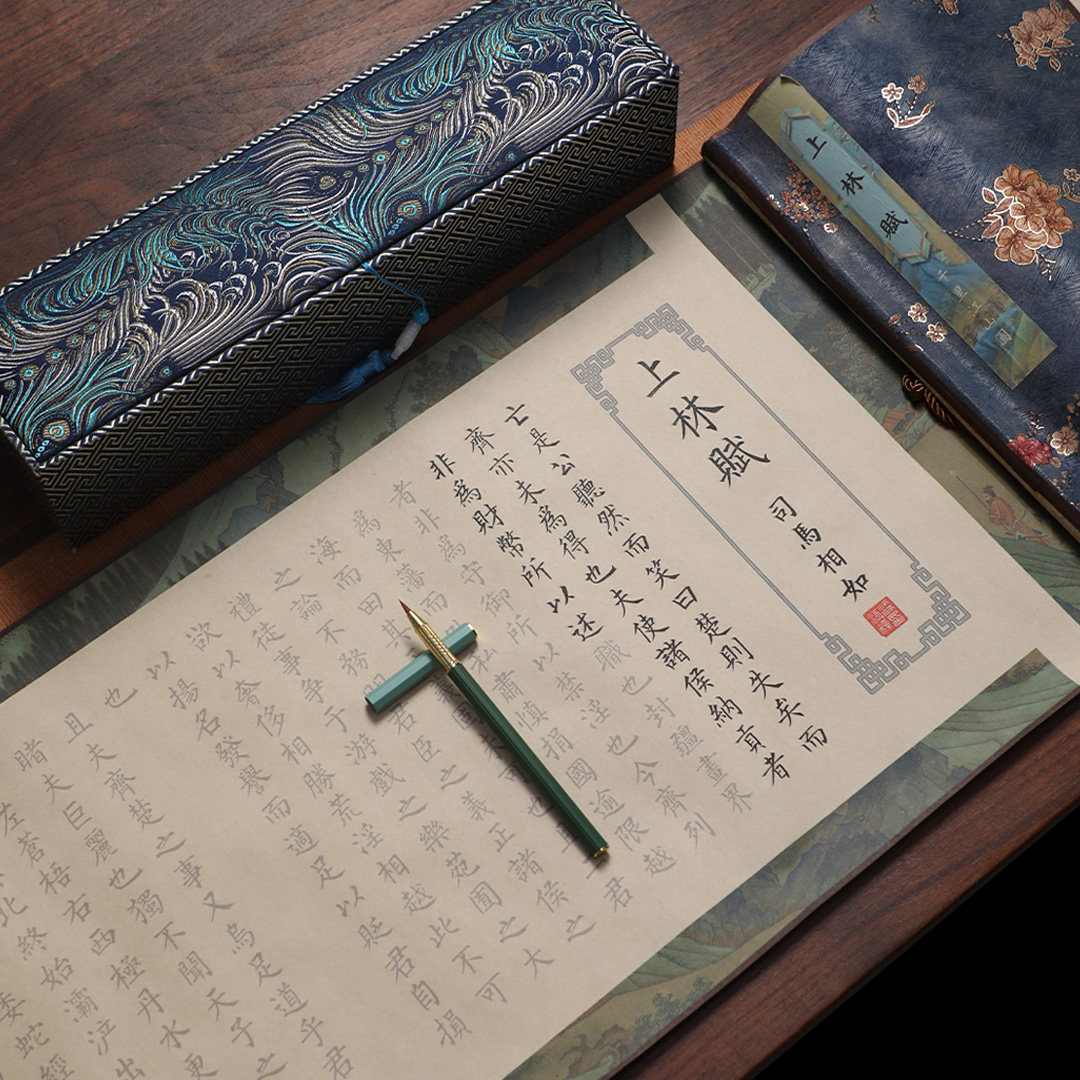 上林賦
千里江山圖
上林賦
司馬相如
亡是公聽然而笑曰楚則失矣而
齊亦未為得也夫使諸侯納貢者
非為財幣所以述職也封疆畫界
者非為守御所以禁淫也今齊列
為東藩而私肅慎捐國逾限越
海而田其固可也君
之論不務明君臣之義正諸侯之
禮徒事爭于游戲之樂苑囿之大
欲以奢侈相勝荒淫相越此不可
以揚名發譽而適足以貶君自損
也
且夫齊楚之事又烏足道乎君
睹夫巨麗也獨不聞天子之
左蒼梧右西極丹水更
北終始灞浐出
委蛇經